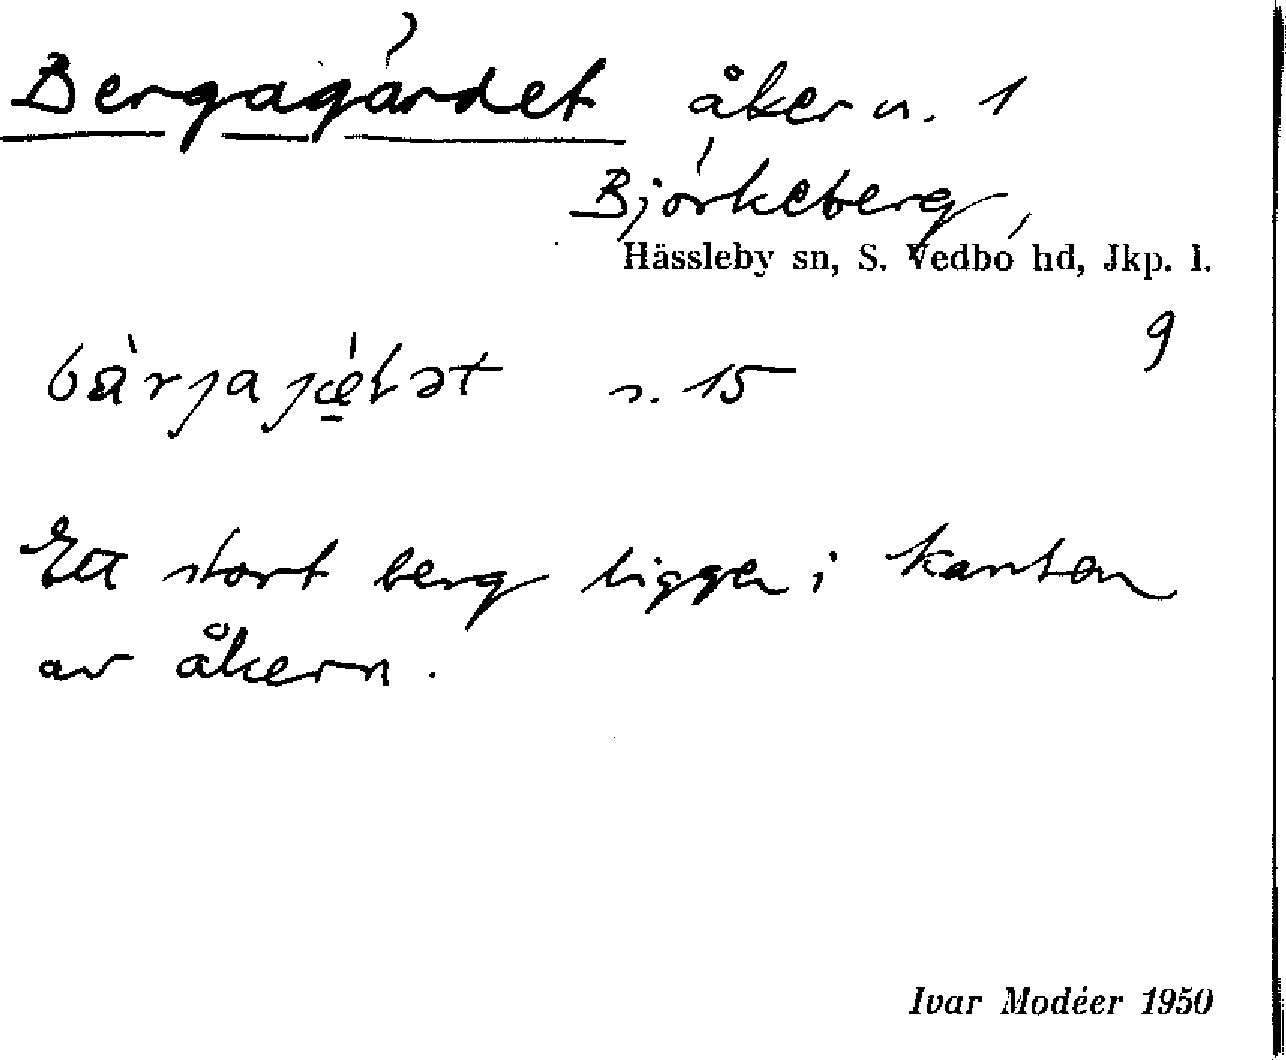 Bergagärdet åker n. 1
Björkeberg,
Hässleby sn, S. Vedbo hd, Jkp. l.
9
s. 15
Ett stort berg ligger i kanten
av åkern.
Ivar Modéer 1950